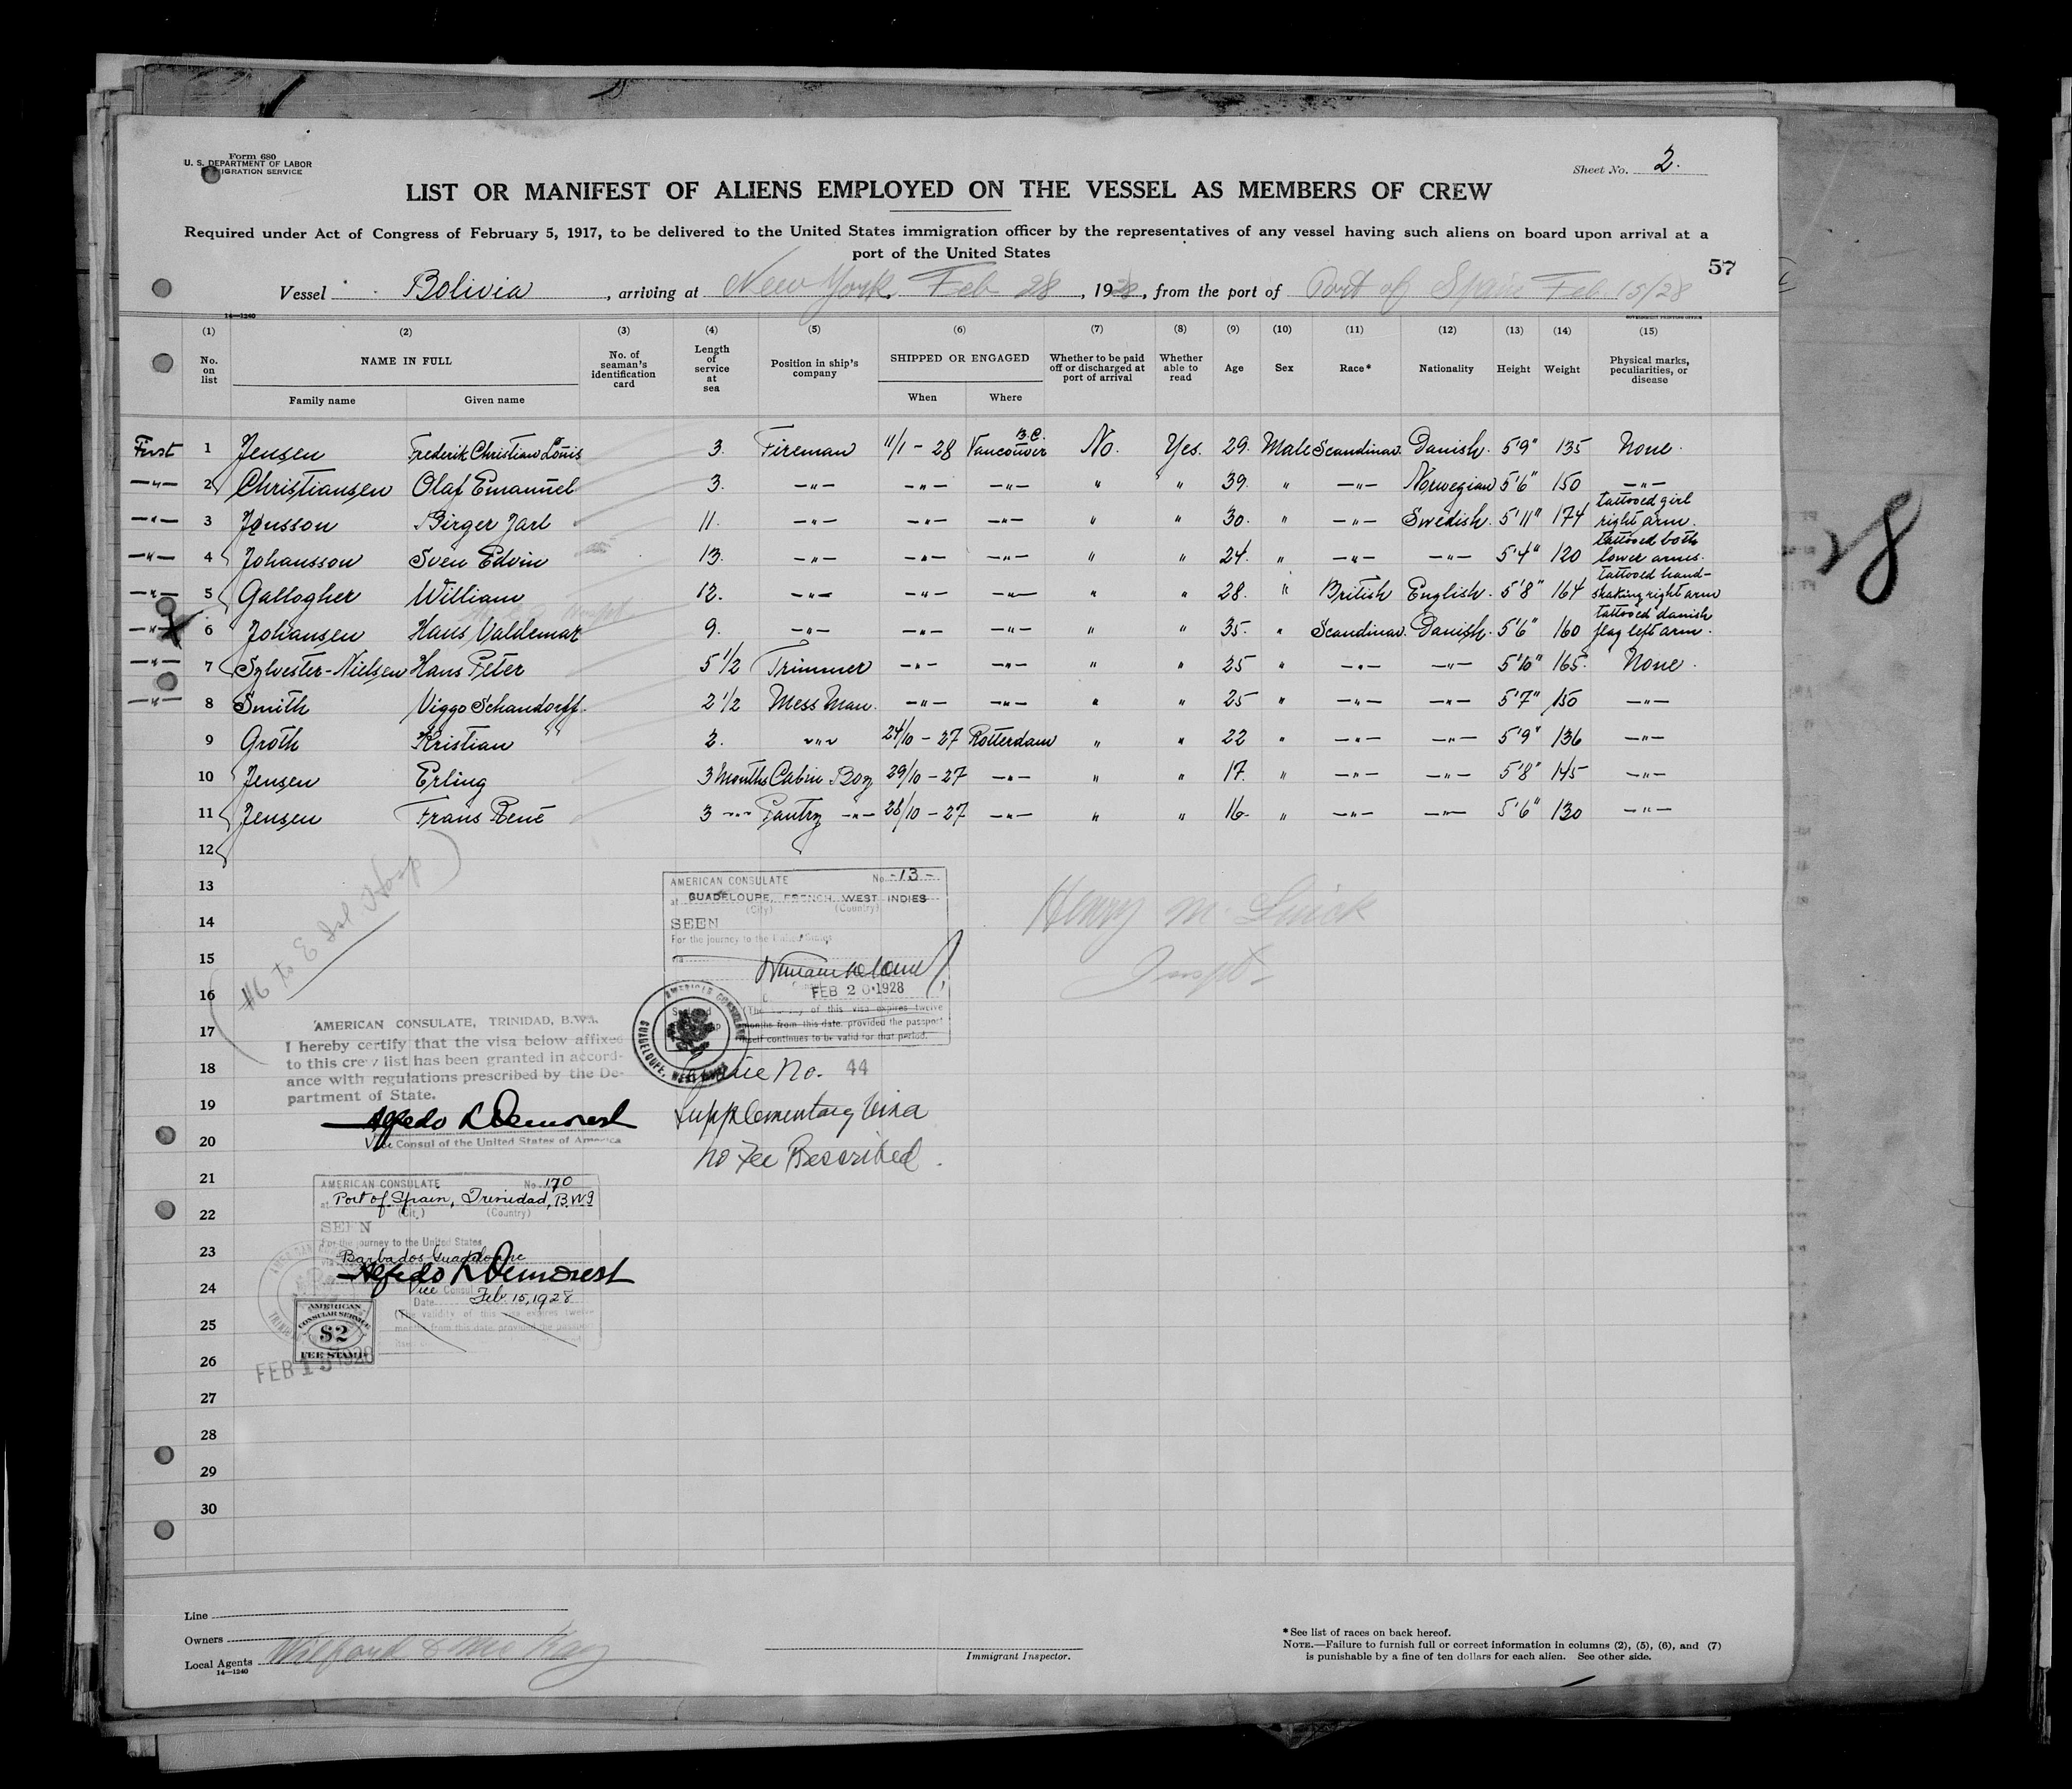 Form 680
U. S. DEPARTMENT OF LABOR
IGRATION SERVICE
Sheet No. 2.
LIST OR MANIFEST OF ALIENS EMPLOYED ON THE VESSEL AS MEMBERS OF CREW
Required under Act of Congress of February 5, 1917, to be delivered to the United States immigration officer by the representatives of any vessel having such aliens on board upon arrival at a
port of the United States
57
Vessel Bolivia, arriving at New York. Feb 28, 1928, from the port of Port of Spain Feb 15/28
14—1240
(1) (2) (3) (4) (5) (6) (7) (8) (9) (10) (11) (12) (13) (14) (15)
No. on list NAME IN FULL No. of seaman's identification card Length of service at sea Position in ship's company SHIPPED OR ENGAGED Whether to be paid off or discharged at port of arrival Whether able to read Age Sex Race* Nationality Height Weight Physical marks, peculiarities, or disease
Family name Given name When Where
First 1 Jensen Frederik Christian Louis 3. Fireman 11/1 - 28 Vancouver B.C. No. Yes. 29. Male Scandinav. Danish. 5'9" 135 None.
—"— 2 Christiansen Olaf Emanuel 3. —"— —"— —"— " " 39. " —"— Norwegian 5'6" 150 —"—
—"— 3 Jonsson Birger Jarl 11. —"— —"— —"— " " 30. " —"— Swedish. 5'11" 174 tattooed girl right arm.
—"— 4 Johansson Sven Edvin 13. —"— —"— —"— " " 24. " —"— —"— 5'4" 120 tattooed both lower arms.
—"— 5 Gallogher William 12. —"— —"— —"— " " 28. " British English. 5'8" 164 tattooed hand-shaking right arm
—"— X 6 Johansen Hans Valdemar 9. —"— —"— —"— " " 35. " Scandinav. Danish. 5'6" 160 tattooed danish flag left arm.
—"— 7 Sylvester-Nielsen Hans Peter 5 1/2 Trimmer —"— —"— " " 25 " —"— —"— 5'10" 165. None.
—"— 8 Smith Viggo Schandorff. 2 1/2 Mess Man. —"— —"— " " 25 " —"— —"— 5'7" 150 —"—
9 Groth Kristian 2. —"— 24/10 - 27 Rotterdam " " 22 " —"— —"— 5'9" 136 —"—
10 Jensen Erling 3 Months Cabin Boy 29/10 - 27 —"— " " 17. " —"— —"— 5'8" 145 —"—
11 Jensen Frans René 3 —"— Pantry —"— 28/10 - 27 —"— " " 16. " —"— —"— 5'6" 130 —"—
12
13
14
15
16
17
18
19
20
21
22
23
24
25
26
27
28
29
30
#6 to E Isl. Hosp
AMERICAN CONSULATE No. -13-
at GUADELOUPE, FRENCH WEST INDIES
(City) (Country)
SEEN
For the journey to the United States
via
FEB 20 1928
(The validity of this visa expires twelve
months from this date, provided the passport
itself continues to be valid for that period.
AMERICAN CONSULATE
GUADELOUPE, WEST INDIES
Service No. 44
Supplementary Visa
No Fee Prescribed.
Henry M.
Inspt.
AMERICAN CONSULATE, TRINIDAD, B.W.I.
I hereby certify that the visa below affixed
to this crew list has been granted in accord-
ance with regulations prescribed by the De-
partment of State.
Alfredo L Demorest
Vice Consul of the United States of America
AMERICAN CONSULATE No. 170
at Port of Spain, Trinidad, B.W.I
(City) (Country)
SEEN
For the journey to the United States
Barbados Guadeloupe
Alfredo L Demorest
Vice Consul
Date Feb 15, 1928
(The validity of this visa expires twelve
months from this date, provided the passport
AMERICAN
CONSULAR SERVICE
$2
FEE STAMP
FEB 15 1928
28
Line
Owners
Local Agents
14—1240
Immigrant Inspector.
*See list of races on back hereof.
NOTE.—Failure to furnish full or correct information in columns (2), (5), (6), and (7)
is punishable by a fine of ten dollars for each alien. See other side.